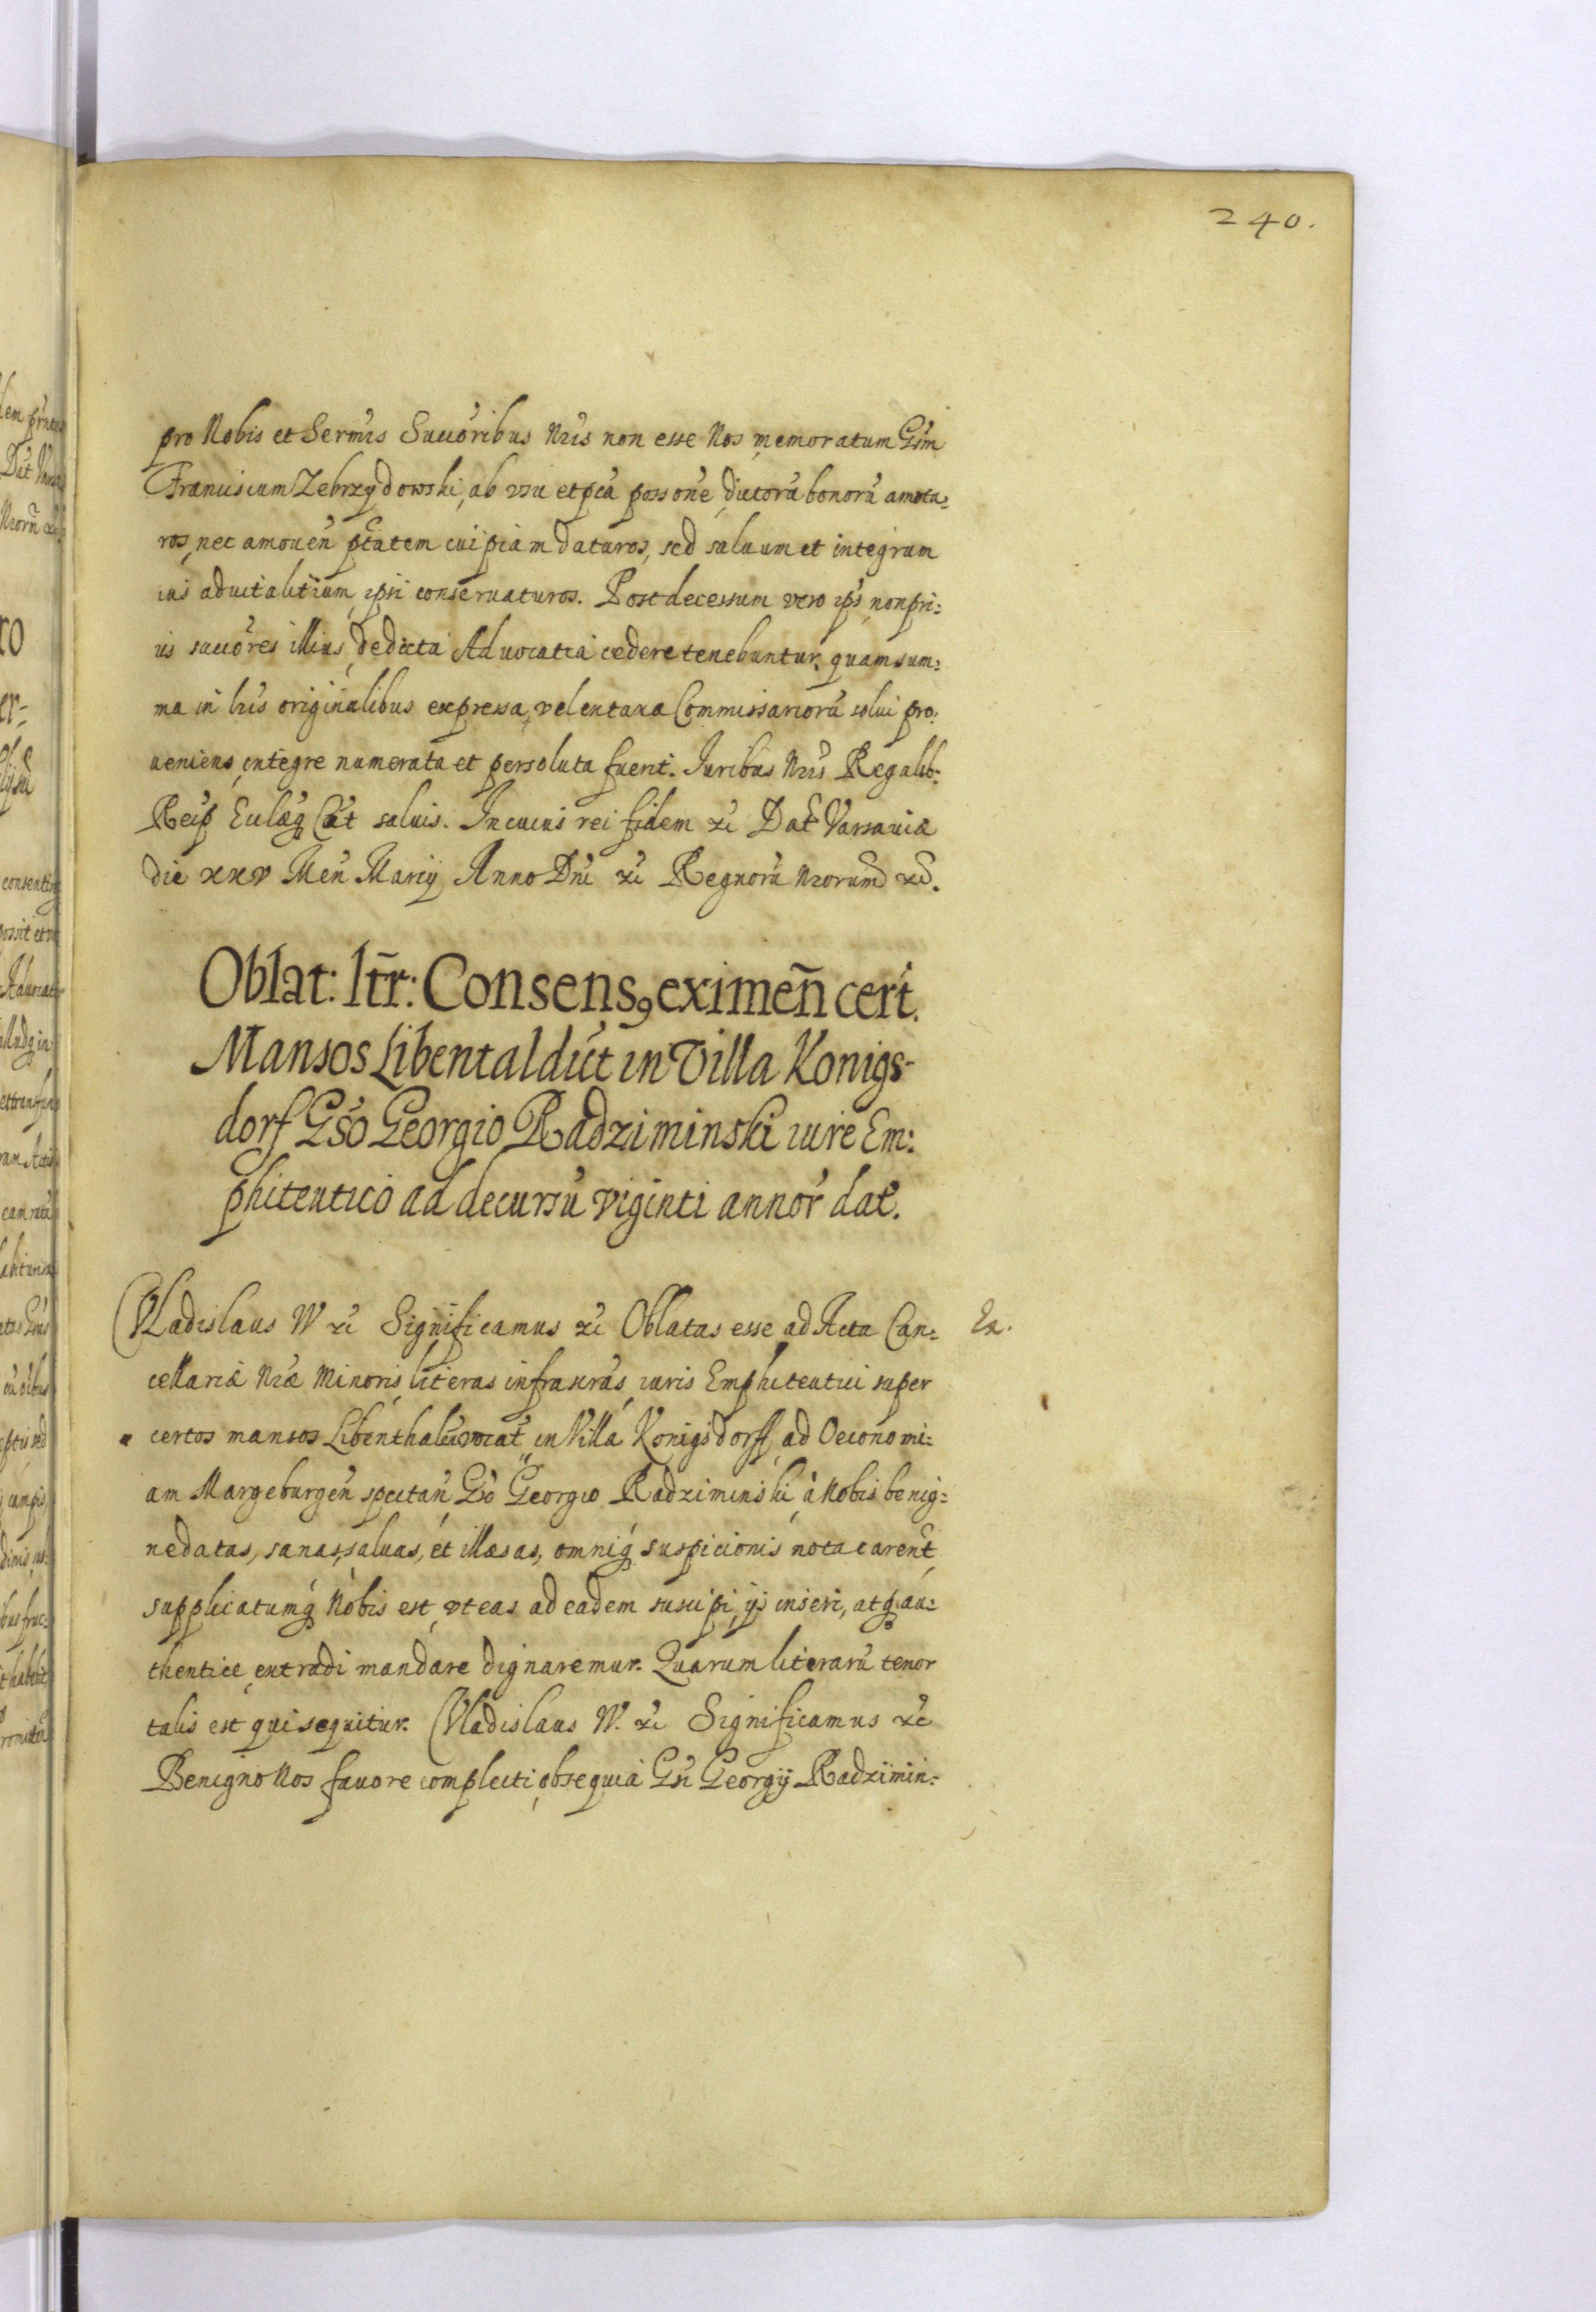 240.
pro Nobis et Sermis Succoribus Nris non esse Nos memoratum Gsm
Franciscum Zebrzydowski, ab vsu et pca possone dictorũ bonorũ amota-
ros, nec amouen ptatem cuipiam daturos, sed saluum et integrum
ius aduitalitium ipsi conseruaturos. Post decessum vero ips, non pri:
us succores illius de dicta Aduocatia cedere tenebuntur. quam sum:
ma in lris originalibus expressa, vel ex taxa Commissariorũ solui pro:
ueniens, integre numerata et persoluta fuerit. Iuribus Nris Regalib:
Reip Ecclæq Cat saluis. In cuius rei fidem &c Dat Varsauiæ
die xxv Men Marty Anno Dni &c Regnorũ Nrorum &c.
Oblat: ltr: Consensꝯ eximen cert.
Mansos Libental dict in Villa Konigs-
dorf Gso Georgio Radziminski iure Em:
phiteutico ad decursũ viginti annor dat.
Vladislaus IV &c Significamus &c Oblatas esse ad Acta Can:
Ex.
cellariæ Nræ Minoris literas infrascras, iuris Emphiteutici super
certos mansos Libenthal vocat in Villa Konigsdorff, ad Oeconomi:
am Margeburgen spectan Gso Georgio Radziminski à Nobis benig:
ne datas, sanas, saluas, et illæsas, omniq suspicionis nota carent
supplicatumq Nobis est, vt eas ad eadem suscipi, ijs inseri, atq au:
thentice extradi mandare dignaremur. Quarum literarũ tenor
talis est qui sequitur. Vladislaus IV. &c Significamus &c
Benigno Nos fauore complecti obsequia Gsi Georgij Radzimin: